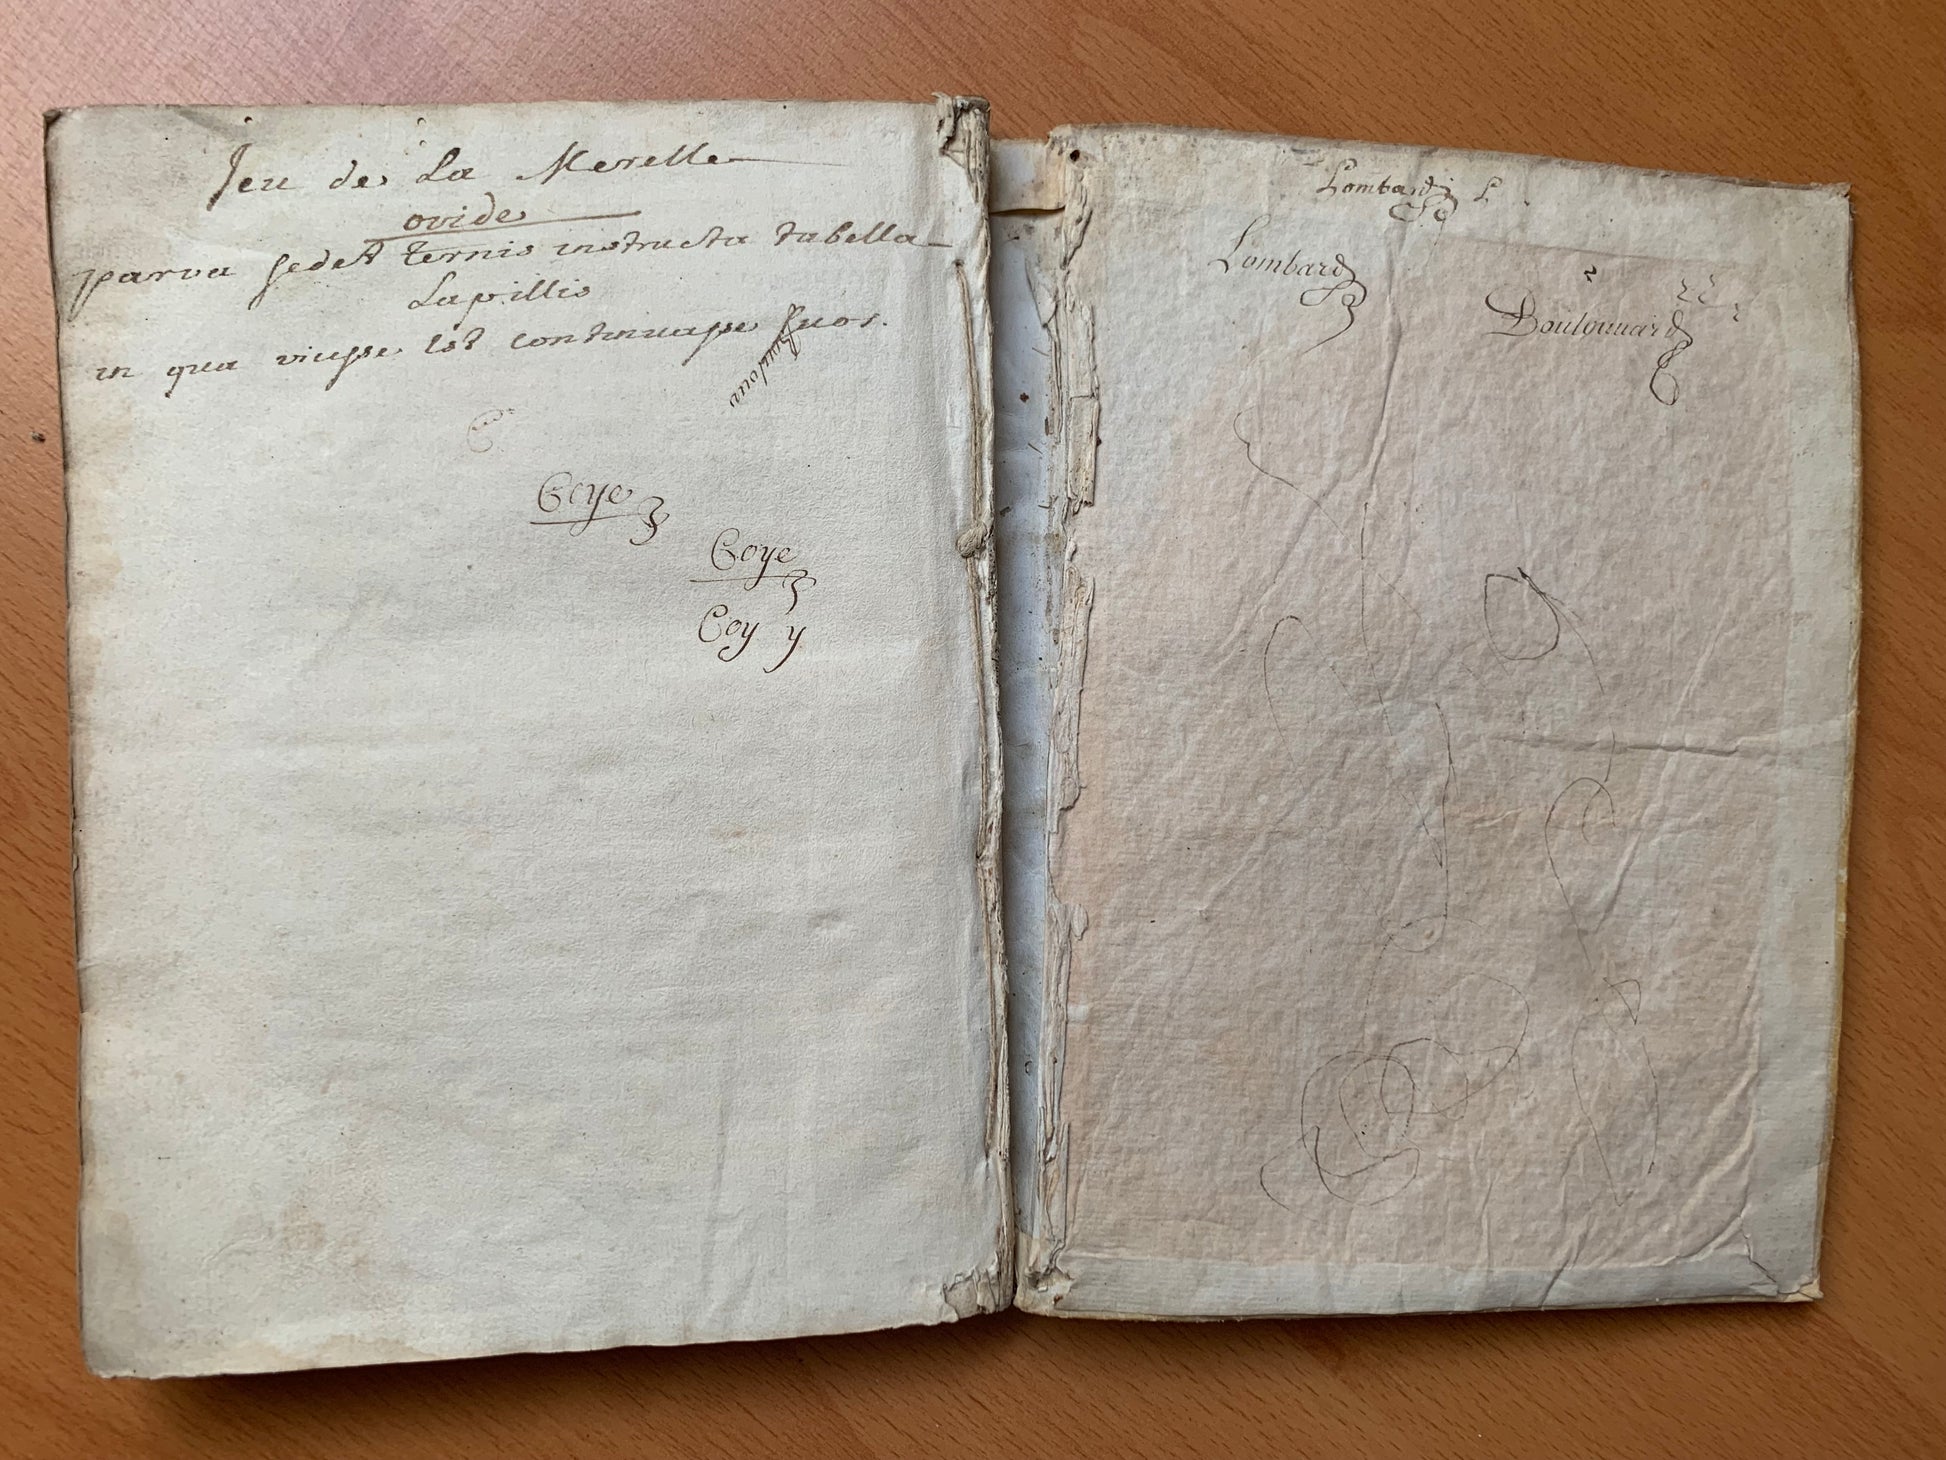 Jeu de La Merelle
ovide
parva sedet ternis instructa tabella
Lapillis
in qua vicisse Est continuasse suos.
Coye
Coye
Coy y
Lombard L
Lombard
Boulouvard